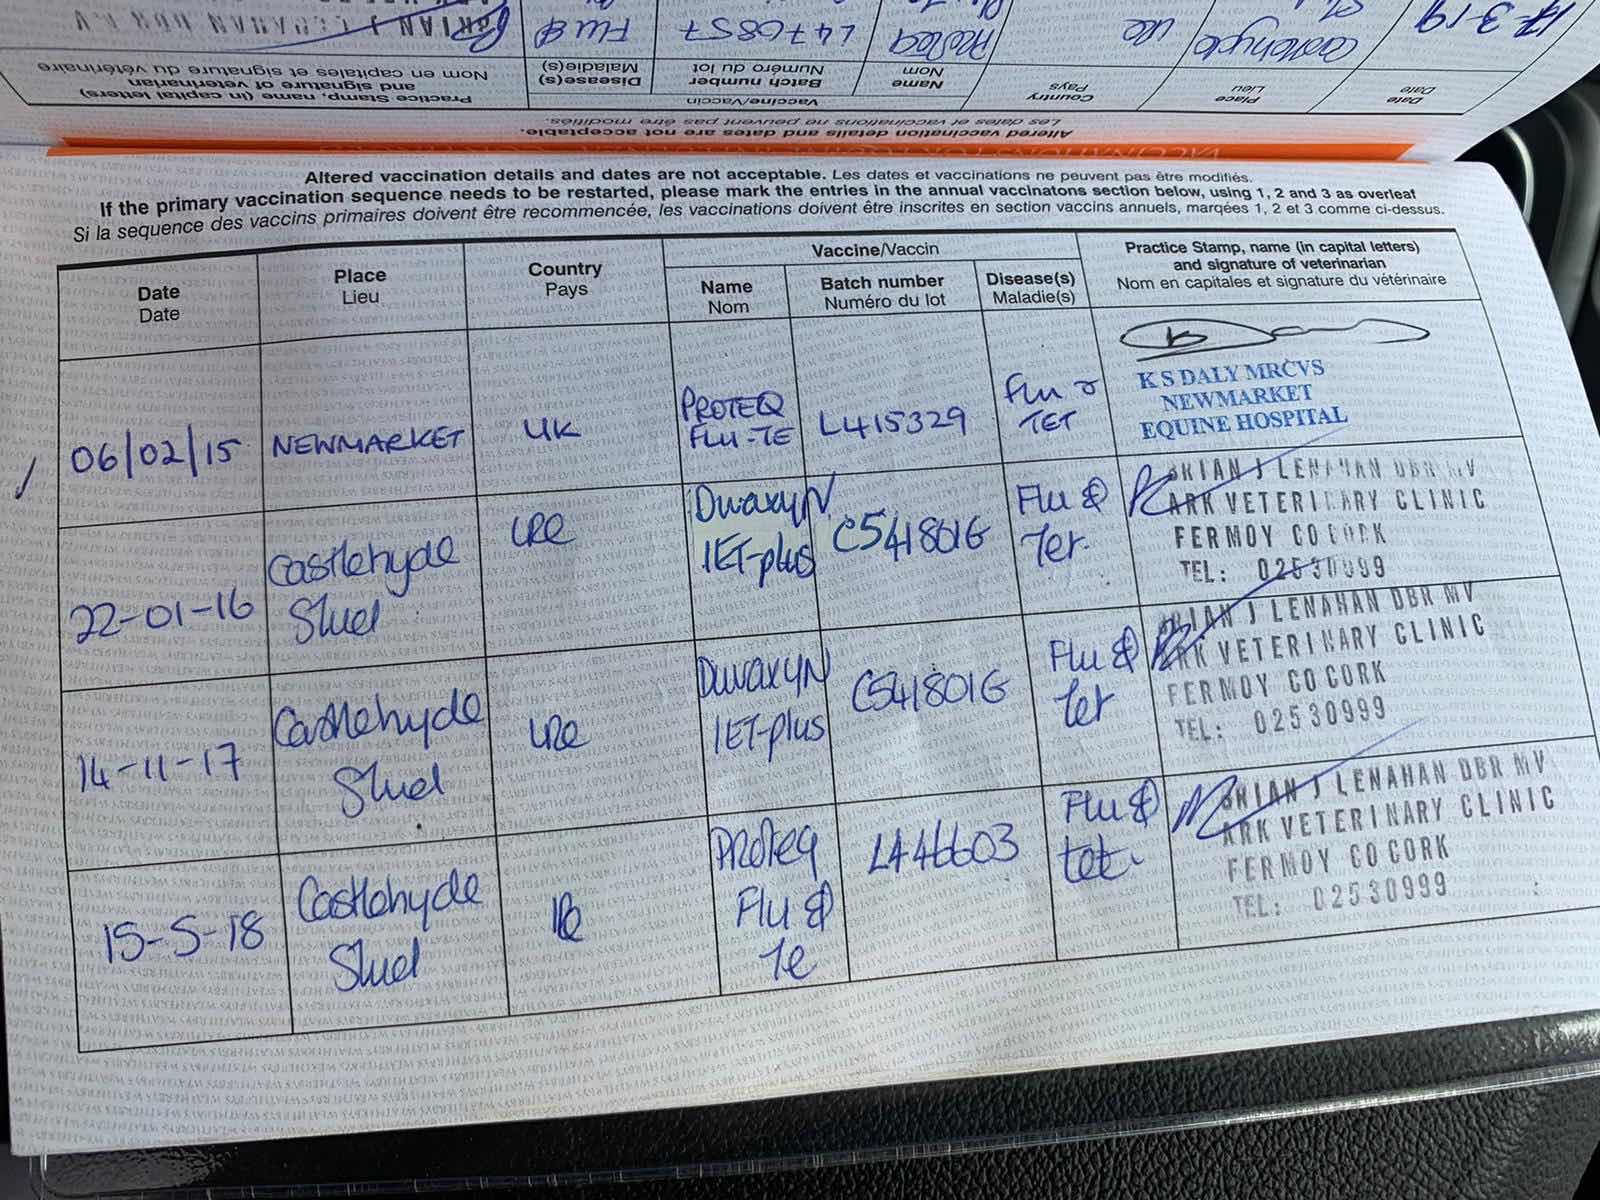 17-3-19
Castlehyde
IRE
Proteq
L476857
Flu &
BRIAN J LENAHAN DBR M.V
Date
Date
Place
Lieu
Country
Pays
Vaccine/Vaccin
Name
Nom
Batch number
Numéro du lot
Disease(s)
Maladie(s)
Practice Stamp, name (in capital letters)
and signature of veterinarian
Nom en capitales et signature du vétérinaire
Altered vaccination details and dates are not acceptable.
Les dates et vaccinations ne peuvent pas être modifiés.
Altered vaccination details and dates are not acceptable. Les dates et vaccinations ne peuvent pas être modifiés.
If the primary vaccination sequence needs to be restarted, please mark the entries in the annual vaccinatons section below, using 1, 2 and 3 as overleaf
Si la sequence des vaccins primaires doivent être recommencée, les vaccinations doivent être inscrites en section vaccins annuels, marqées 1, 2 et 3 comme ci-dessus.
Date
Date
Place
Lieu
Country
Pays
Vaccine/Vaccin
Name
Nom
Batch number
Numéro du lot
Disease(s)
Maladie(s)
Practice Stamp, name (in capital letters)
and signature of veterinarian
Nom en capitales et signature du vétérinaire
06/02/15
NEWMARKET
UK
PROTEQ
FLU-TE
L415329
FLU &
TET
K S DALY MRCVS
NEWMARKET
EQUINE HOSPITAL
22-01-16
Castlehyde
Stud
IRE
Duvaxyn
IET-plus
C541801G
Flu &
Tet.
BRIAN J LENAHAN DBR MV
ARK VETERINARY CLINIC
FERMOY CO CORK
TEL: 02530999
14-11-17
Castlehyde
Stud
IRE
Duvaxyn
IET-plus
C541801G
Flu &
tet
BRIAN J LENAHAN DBR MV
ARK VETERINARY CLINIC
FERMOY CO CORK
TEL: 02530999
15-5-18
Castlehyde
Stud
IRE
Proteq
Flu &
Te
L446603
Flu &
tet
BRIAN J LENAHAN DBR MV
ARK VETERINARY CLINIC
FERMOY CO CORK
TEL: 02530999